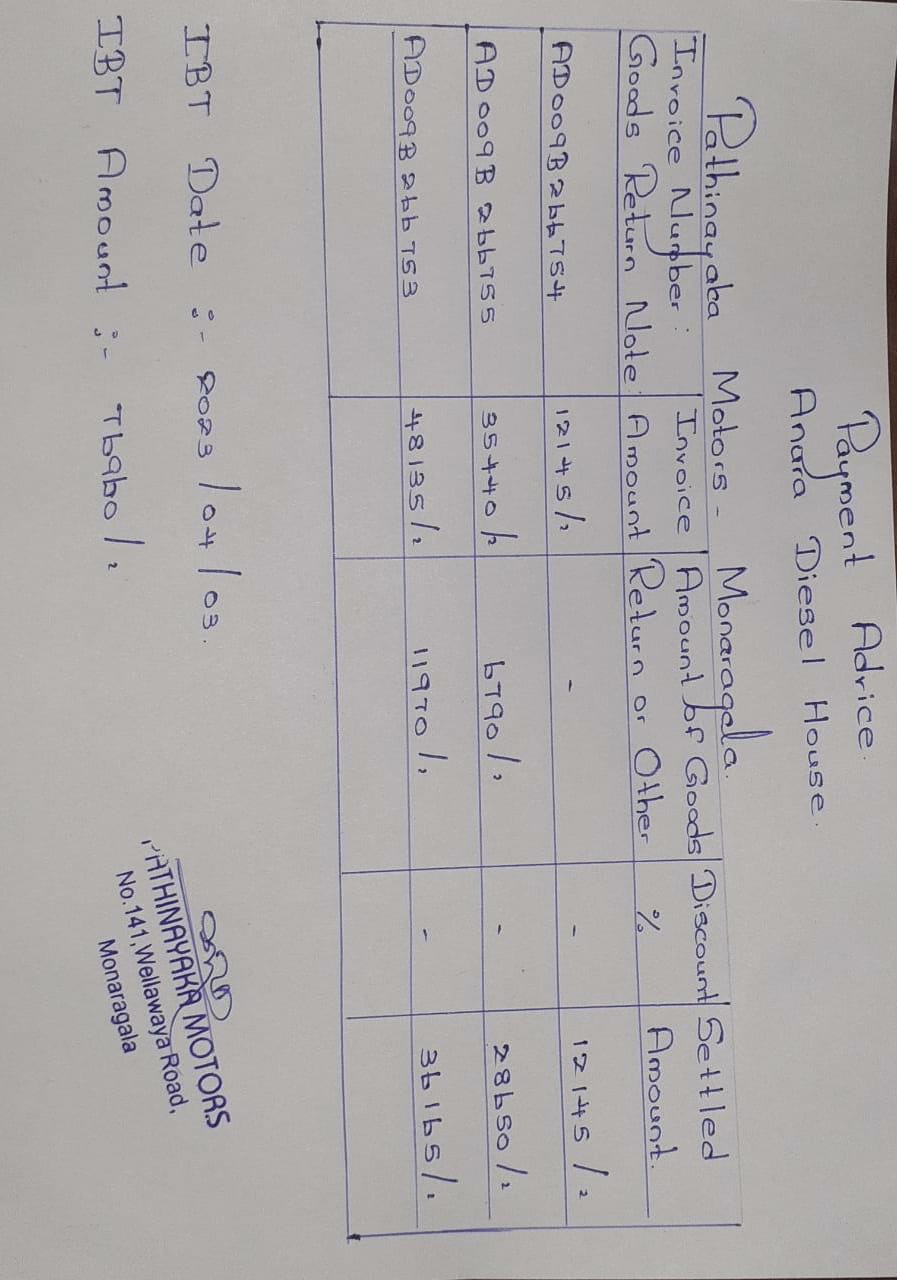 Payment Advice.
Anara Diesel House.
Pathinayaka Motors - Monaragala.
Invoice Number: Invoice Amount of Goods Discount Settled
Goods Return Note: Amount Return or Other % Amount.
AD009B266754 12145/= - - 12145/=
AD009B266755 35440/= 6790/= - 28650/=
AD009B266753 48135/= 11970/= - 36165/=
IBT Date :- 2023/04/03.
IBT Amount :- 76960/=
PATHINAYAKA MOTORS
No.141, Wellawaya Road,
Monaragala